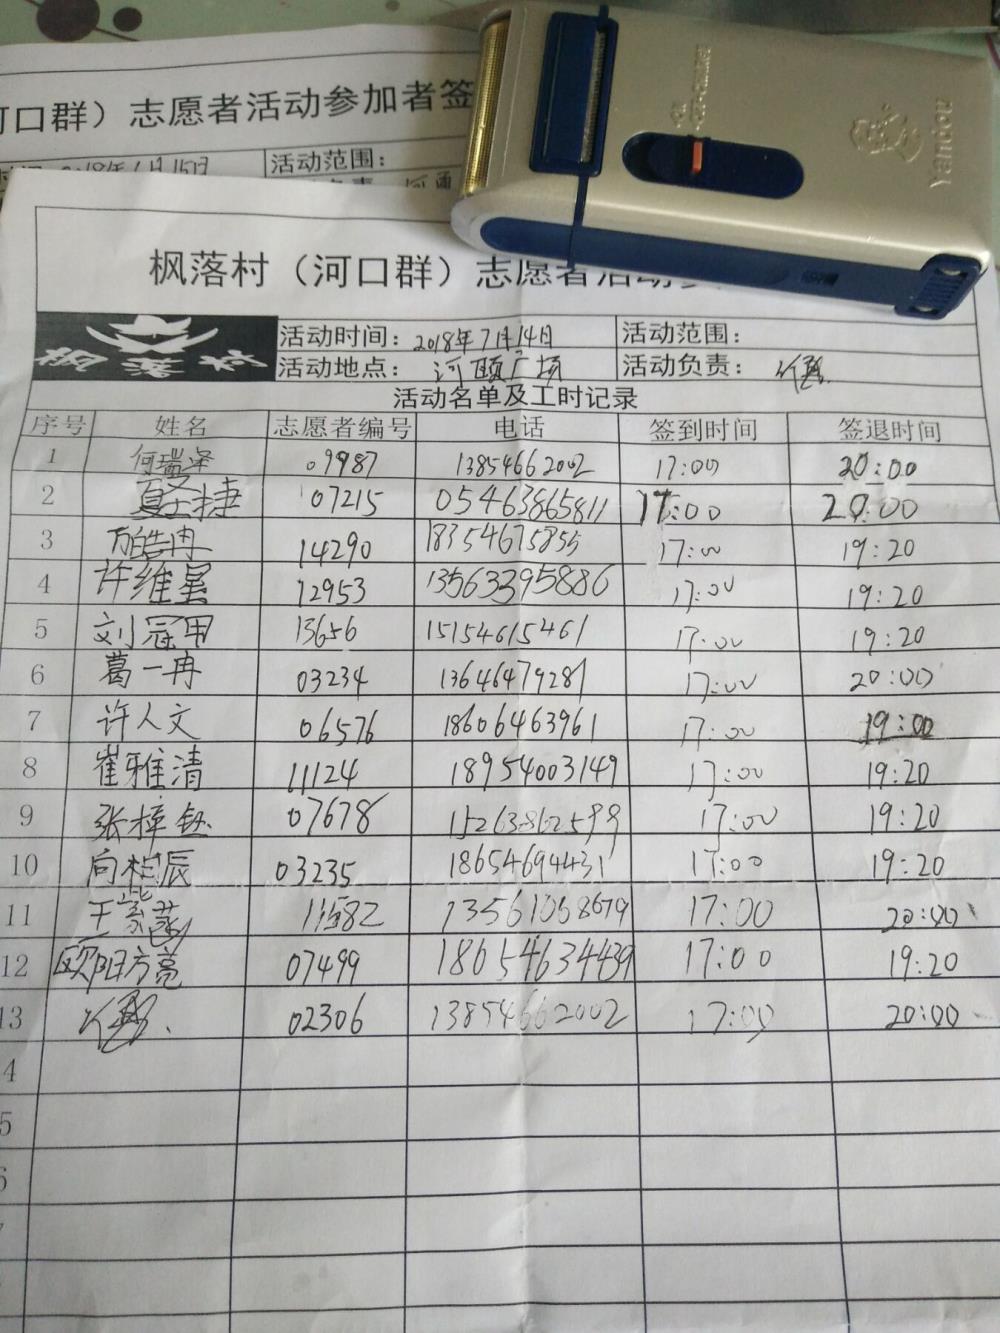 河口群）志愿者活动参加者签
2018年1月15日 活动范围：
枫落村（河口群）志愿者活动
枫落村
活动时间：2018年7月14日 活动范围：
活动地点：河颐广场 活动负责：
活动名单及工时记录
序号 姓名 志愿者编号 电话 签到时间 签退时间
1 何瑞泽 09987 13854662002 17:00 20:00
2 夏士捷 07215 05463865811 17:00 20:00
3 万皓冉 14290 18354675855 17:00 19:20
4 许维星 12953 13563395886 17:00 19:20
5 刘冠甲 13656 15154615461 17:00 19:20
6 葛一冉 03234 13646479281 17:00 20:00
7 许人文 06576 18606463961 17:00 19:00
8 崔雅清 11124 18954003149 17:00 19:20
9 张梓钰 07678 15263862599 17:00 19:20
10 向柏辰 03235 18654694431 17:00 19:20
11 王 11582 13561068679 17:00 20:00
12 欧阳方亮 07499 18654634439 17:00 19:20
13 02306 13854662002 17:00 20:00
4
5
Yandou